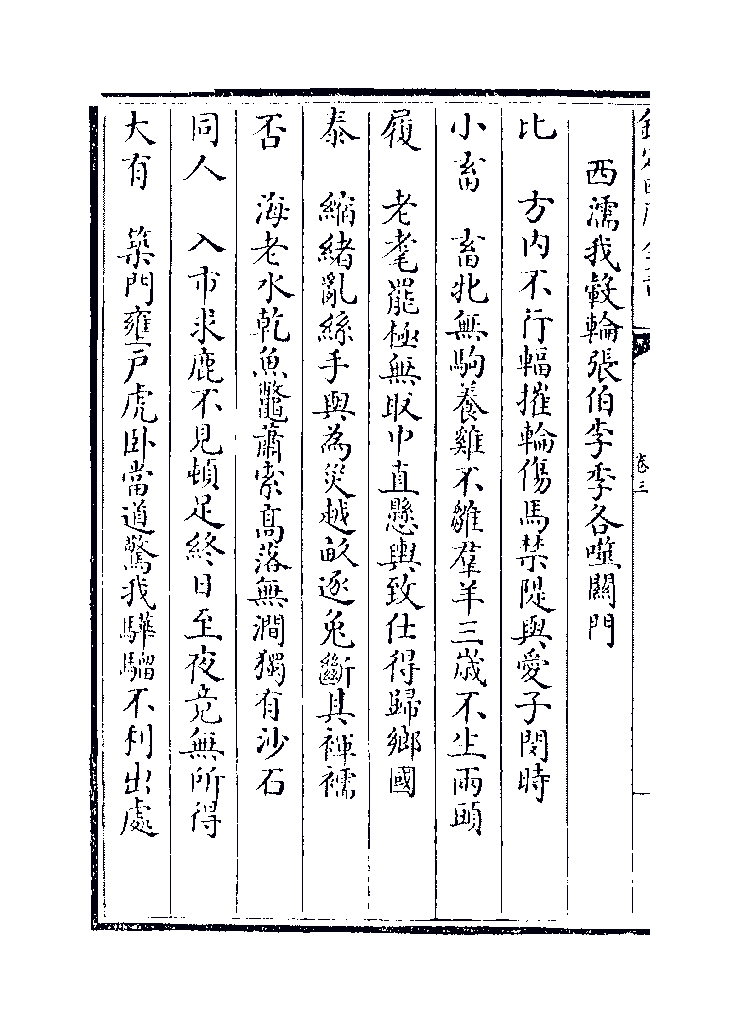 西濡我轂輪張伯李季各噬關門
比　方內不行輻摧輪傷馬禁隄與愛子閔時
小畜　畜牝無駒養雞不雛羣羊三歳不生兩頭
履　老耄罷極無取巾直懸輿致仕得歸鄉國
泰　縮緒亂絲手與為災越畝逐兔斷其褌襦
否　海老水乾魚鼈蕭索髙落無澗獨有沙石
同人　入市求鹿不見頓足終日至夜竟無所得
大有　築門壅户虎卧當道驚我驊騮不利出處
卷三